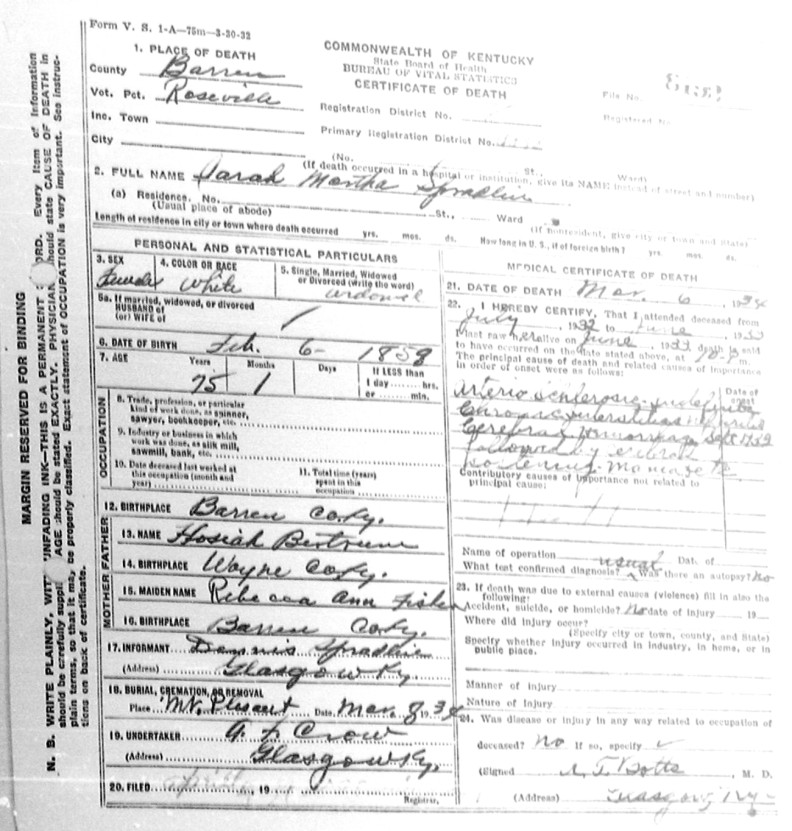 Form V. S. 1-A—75m—3-30-32
COMMONWEALTH OF KENTUCKY
State Board of Health
BUREAU OF VITAL STATISTICS
CERTIFICATE OF DEATH
1. PLACE OF DEATH
County Barren
Vot. Pct. Roseville
Inc. Town
City
Registration District No.
Primary Registration District No.
File No.
Registered No.
(No. St., Ward)
(If death occurred in a hospital or institution, give its NAME instead of street and number)
2. FULL NAME Sarah Martha Spradlin
(a) Residence. No. St., Ward
(Usual place of abode) (If nonresident, give city or town and State)
Length of residence in city or town where death occurred yrs. mos. ds. How long in U. S., if of foreign birth? yrs. mos. ds.
PERSONAL AND STATISTICAL PARTICULARS
3. SEX 4. COLOR OR RACE 5. Single, Married, Widowed
or Divorced (write the word)
Female White Widowed
5a. If married, widowed, or divorced
HUSBAND of
(or) WIFE of
6. DATE OF BIRTH Feb. 6- 1858
7. AGE Years Months Days If LESS than
75 1 1 day hrs.
or min.
OCCUPATION
8. Trade, profession, or particular
kind of work done, as spinner,
sawyer, bookkeeper, etc.
9. Industry or business in which
work was done, as silk mill,
sawmill, bank, etc.
10. Date deceased last worked at
this occupation (month and
year)
11. Total time (years)
spent in this
occupation
12. BIRTHPLACE Barren Co Ky.
FATHER
13. NAME Hosiah
14. BIRTHPLACE Wayne Co Ky.
MOTHER
15. MAIDEN NAME Rebecca Ann Fisher
16. BIRTHPLACE Barren Co Ky.
17. INFORMANT Dennis Spradlin
(Address) Glasgow Ky.
18. BURIAL, CREMATION, OR REMOVAL
Place Mt. Plesant Date Mar. 8 1934
19. UNDERTAKER Crow
(Address) Glasgow Ky.
20. FILED 19
Registrar.
MEDICAL CERTIFICATE OF DEATH
21. DATE OF DEATH Mar. 6, 1934
22. I HEREBY CERTIFY, That I attended deceased from
July, 1932 to June, 1933
I last saw her alive on June, 1933 death is said
to have occurred on the date stated above, at m.
The principal cause of death and related causes of importance
in order of onset were as follows:
Date of
onset
Arterio Sclerosis indefinite
Chronic interstitial nephritis
Cerebral hemorrhage Sept 1932
followed by
softening
Contributory causes of importance not related to
principal cause:
Name of operation Date of
What test confirmed diagnosis? usual Was there an autopsy? No
23. If death was due to external causes (violence) fill in also the
following:
Accident, suicide, or homicide? No date of injury 19
Where did injury occur?
(Specify city or town, county, and State)
Specify whether injury occurred in industry, in home, or in
public place.
Manner of injury
Nature of injury
24. Was disease or injury in any way related to occupation of
deceased? No If so, specify
(Signed Botts, M. D.
(Address) Glasgow, Ky-
MARGIN RESERVED FOR BINDING
N. B. WRITE PLAINLY, WITH UNFADING INK—THIS IS A PERMANENT RECORD. Every item of information
should be carefully supplied. AGE should be stated EXACTLY. PHYSICIAN should state CAUSE OF DEATH in
plain terms, so that it may be properly classified. Exact statement of OCCUPATION is very important. See instruc-
tions on back of certificate.